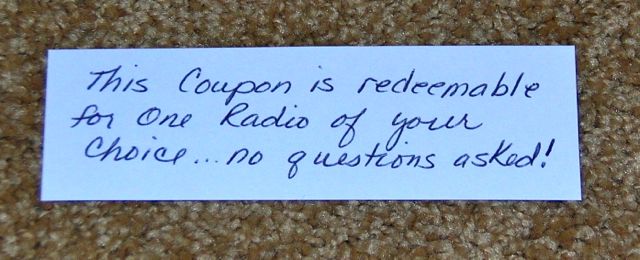 This Coupon is redeemable
for One Radio of your
Choice...no questions asked!